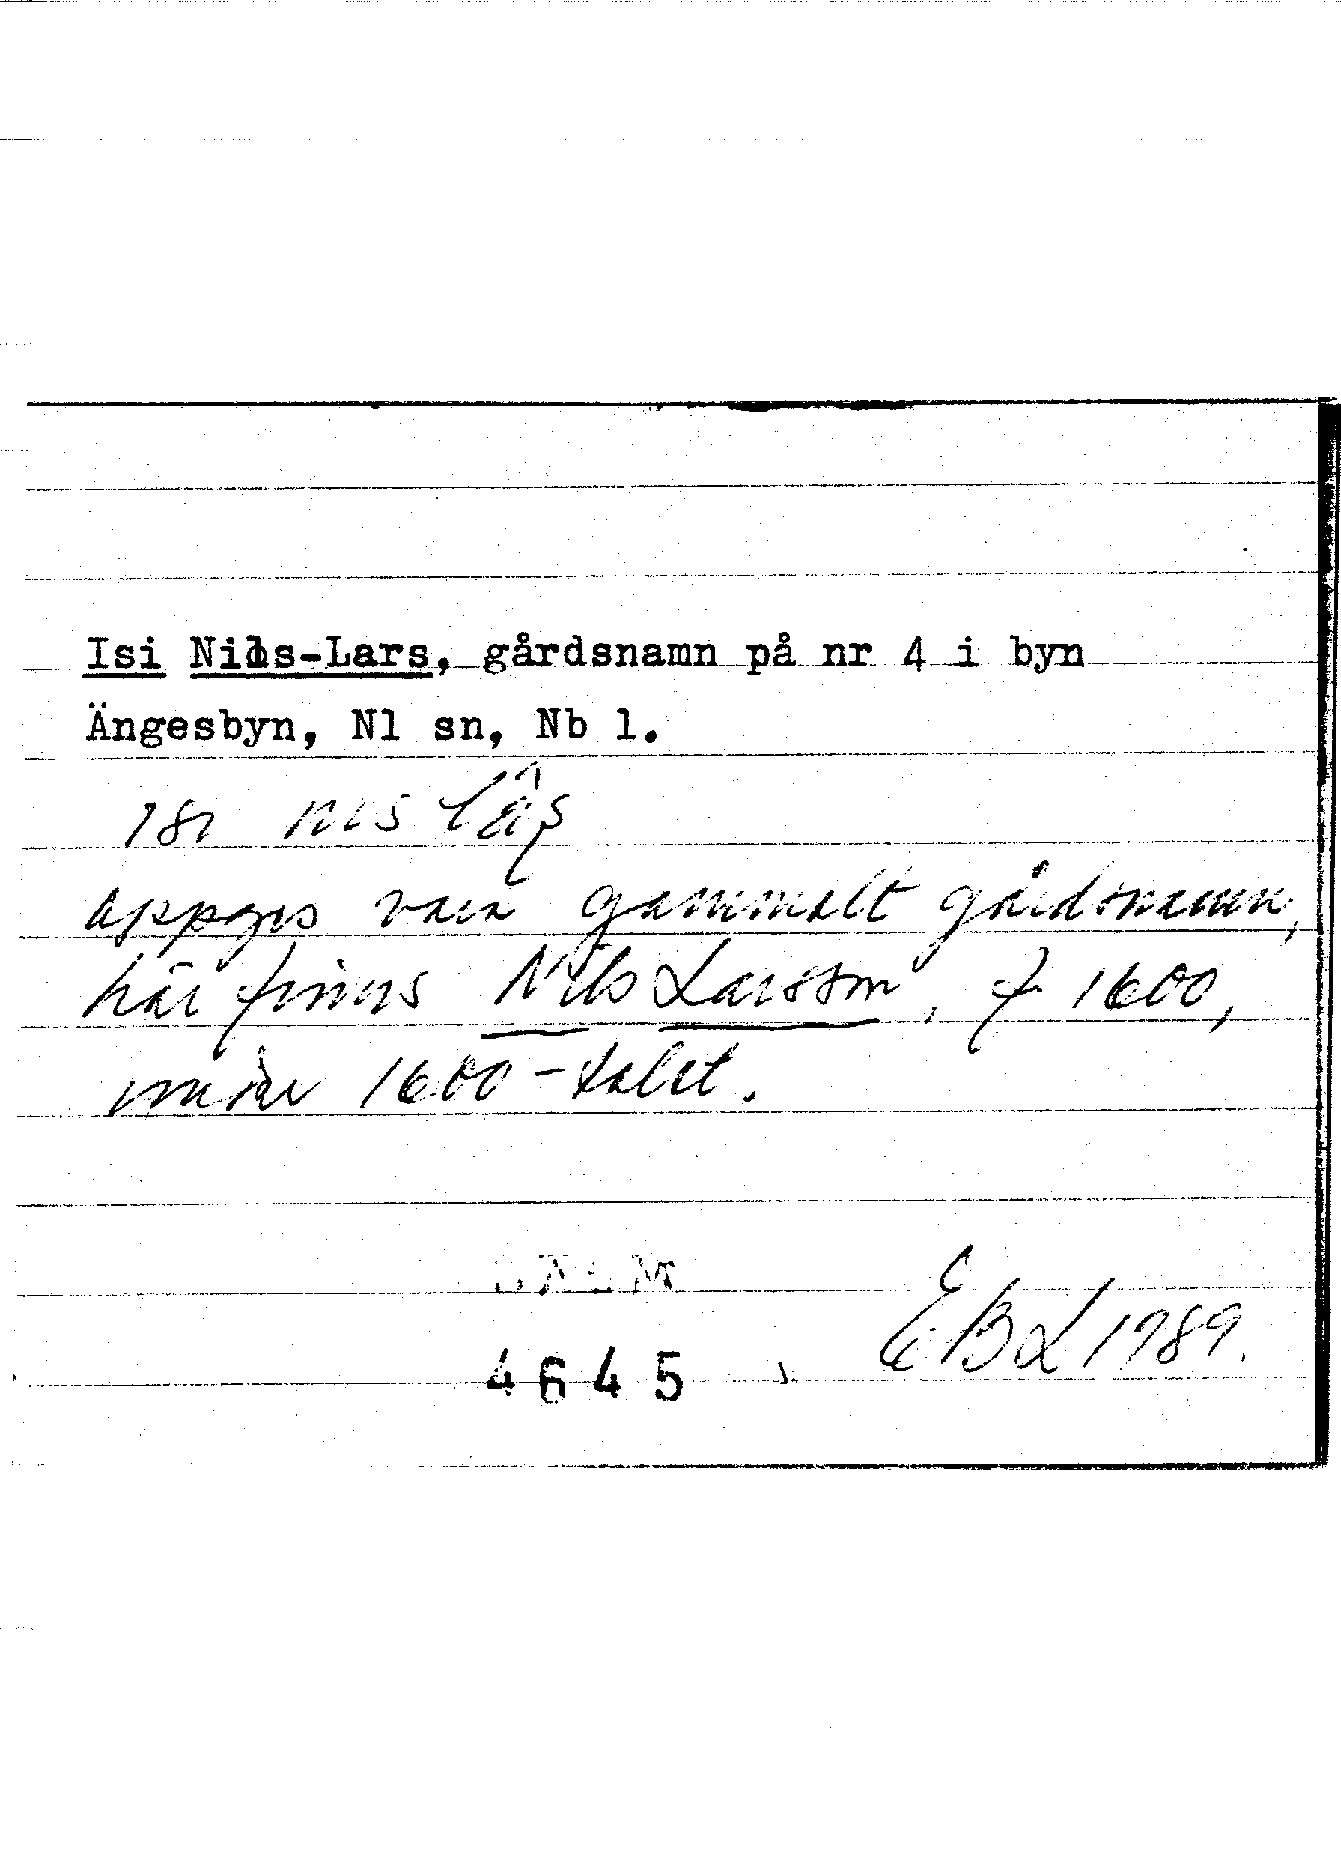 Isi Nils-Lars, gårdsnamn på nr 4 i byn
Ängesbyn, Nl sn, Nb l.
ısı nıs
uppges vara gammalt gårdsnamn,
här finns Nils Larsson, f 1600,
under 1600-talet.
4645
EBL 1989.